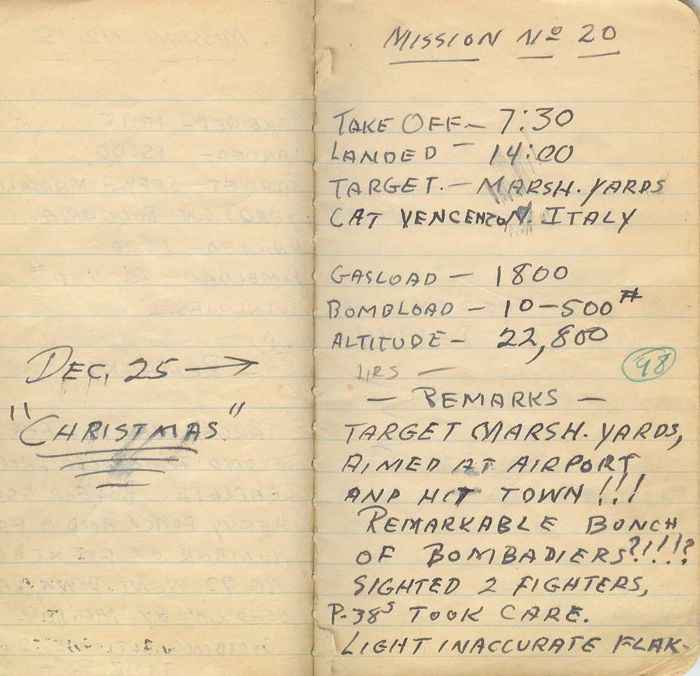 DEC. 25 →
"CHRISTMAS"
MISSION No 20
TAKE OFF— 7:30
LANDED — 14:00
TARGET.— MARSH. YARDS
CAT VENCENZON. ITALY
GASLOAD — 1800
BOMBLOAD — 10—500#
ALTITUDE — 22,800
HRS —
98
— REMARKS —
TARGET MARSH. YARDS,
AIMED AT AIRPORT
AND HIT TOWN!!!
REMARKABLE BUNCH
OF BOMBADIERS?!!!?
SIGHTED 2 FIGHTERS,
P-38S TOOK CARE.
LIGHT INACCURATE FLAK-